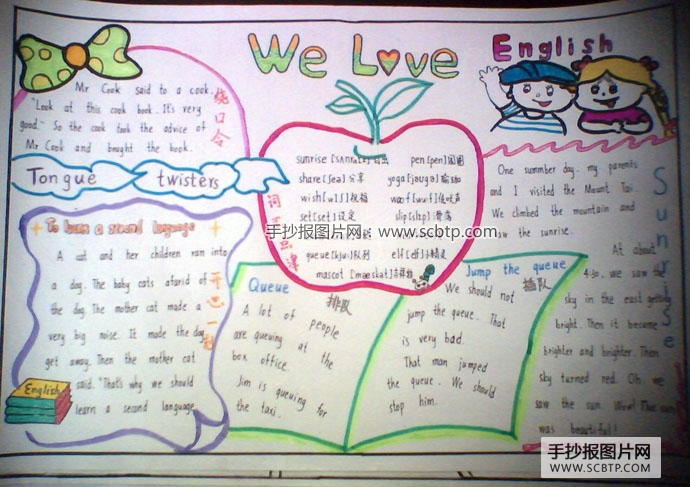 We Love English
Mr Cook said to a cook.
"Look at this cook book. It's very
good." So the cook took the advice of
Mr Cook and bought the book.
绕口令
Tongue twisters
To learn a second language
A cat and her children ran into
a dog. The baby cats afarid of
the dog. The mother cat made a
very big noise. It made the dog
get away. Then the mother cat
said. "That's why we should
learn a second language
开心一
English
sunrise
pen[pen]
share[ʃeə]分享
yoga[jəugə]瑜珈
wish[wɪʃ]祝福
woof[wuf]低吠声
set[set]设定
slip[slɪp]滑落
手抄报图片网 www.scbtp.com
queue[kju:]队列
elf[elf]小精灵
mascot[mæskət]吉祥物
Queue
排队
A lot of people
are queuing at the
box office.
Jim is queuing for
the taxi.
Jump the queue
插队
We should not
jump the queue. That
is very bad.
That man jumped
the queue. We should
stop him.
Sunrise
One summber day. my parents
and I visited the Mount Tai.
We climbed the mountain and
saw the sunrise.
At about
4:30. we saw the
sky in the east getting
bright. Then it became
brighter and brighter. Then
sky turned red. Oh. we
saw the sun. Wow! The sun
was beautiful!
手抄报图片网
WWW.SCBTP.COM